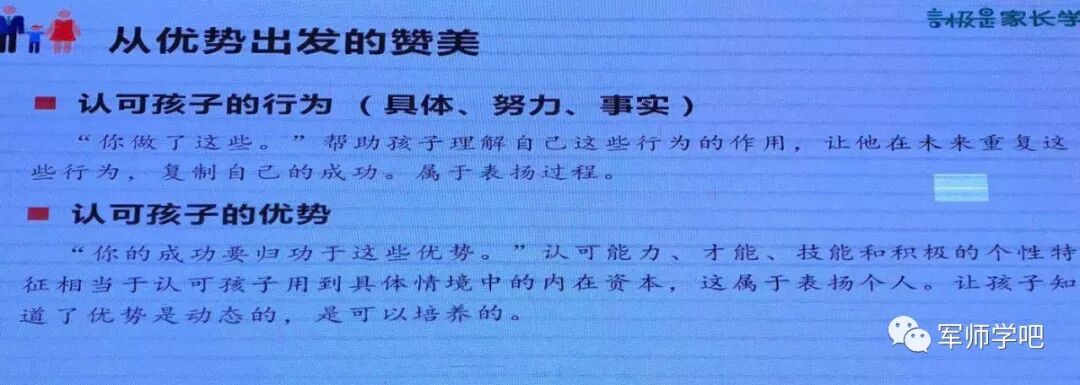 言极是家长学
从优势出发的赞美
认可孩子的行为（具体、努力、事实）
“你做了这些。”帮助孩子理解自己这些行为的作用，让他在未来重复这
些行为，复制自己的成功。属于表扬过程。
认可孩子的优势
“你的成功要归功于这些优势。”认可能力、才能、技能和积极的个性特
征相当于认可孩子用到具体情境中的内在资本，这属于表扬个人。让孩子知
道了优势是动态的，是可以培养的。
军师学吧